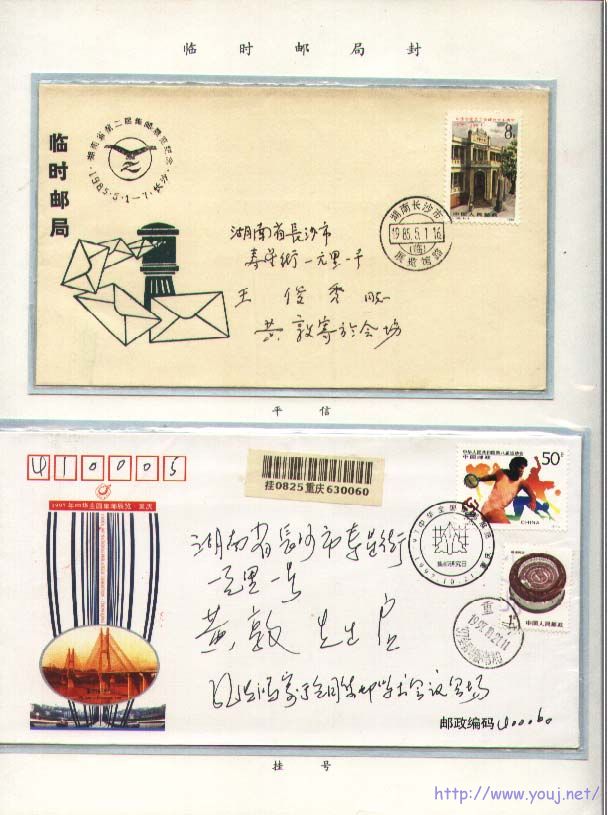 临时邮局封
临时邮局
湖南省第二届集邮展览纪念
1985·5·1-7·长沙
8分
中国人民邮政
湖南长沙市
1985.5.1 16
(临)
展览馆路
湖南省長沙市
寿星街一元里一号
王俊秀收
黄敦寄於会场
平信
410005
1997年中华全国集邮展览 重庆
挂0825重庆630060
中华人民共和国第八届运动会
中国邮政
50分
CHINA
集邮研究日
中国人民邮政
湖南省長沙市寿星街
一元里一号
黄敦先生启
邮政编码 400060
挂号
http://www.youj.net/